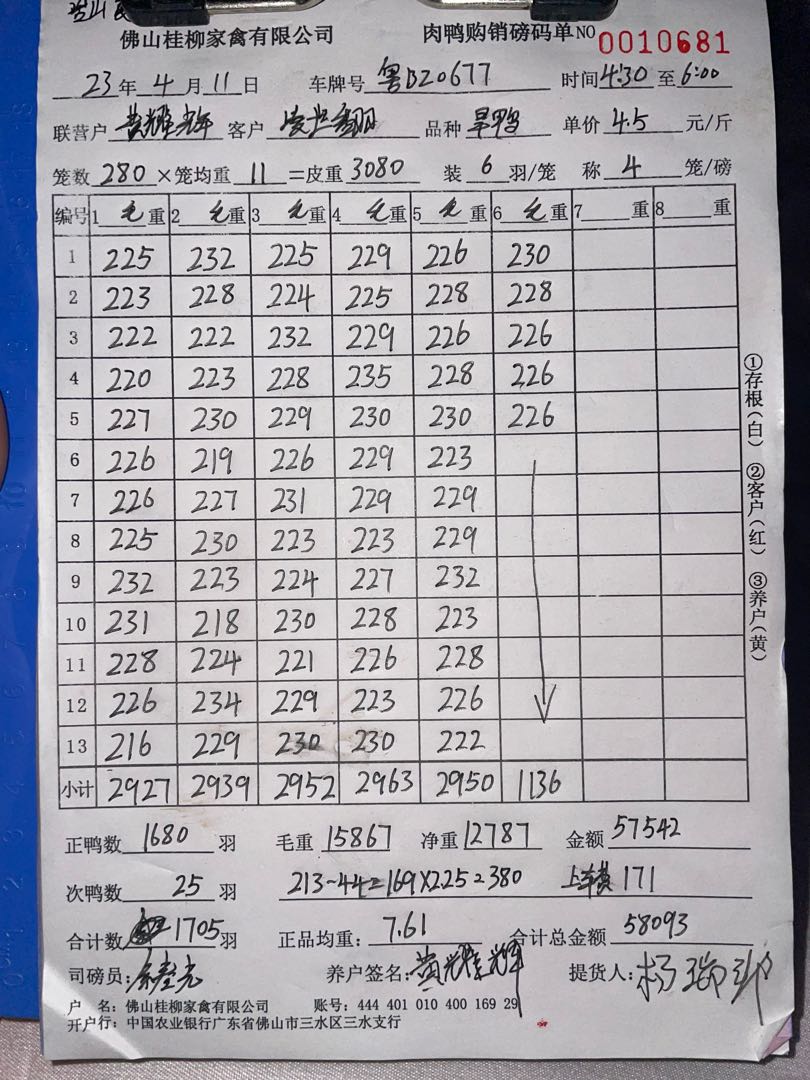 佛山桂柳家禽有限公司 肉鸭购销磅码单 NO 0010681
23年4月11日 车牌号 粤BZ0677 时间4:30至6:00
联营户 黄耀辉 客户 品种 旱鸭 单价 4.5 元/斤
笼数 280 ×笼均重 11 =皮重 3080 装 6 羽/笼 称 4 笼/磅
编号 1 毛 重 2 毛 重 3 毛 重 4 毛 重 5 毛 重 6 毛 重 7 重 8 重
1 225 232 225 229 226 230
2 223 228 224 225 228 228
3 222 222 232 229 226 226
4 220 223 228 235 228 226
5 227 230 229 230 230 226
6 226 219 226 229 223
7 226 227 231 229 229
8 225 230 223 223 229
9 232 223 224 227 232
10 231 218 230 228 223
11 228 224 221 226 228
12 226 234 229 223 226
13 216 229 230 230 222
小计 2927 2939 2952 2963 2950 1136
①存根(白) ②客户(红) ③养户(黄)
正鸭数 1680 羽 毛重 15867 净重 12787 金额 57542
次鸭数 25 羽 213-44=169×2.25=380 上车费 171
合计数 1705 羽 正品均重: 7.61 合计总金额 58093
司磅员: 养户签名: 黄耀辉 提货人:
户 名: 佛山桂柳家禽有限公司 账号: 444 401 010 400 169 29
开户行: 中国农业银行广东省佛山市三水区三水支行